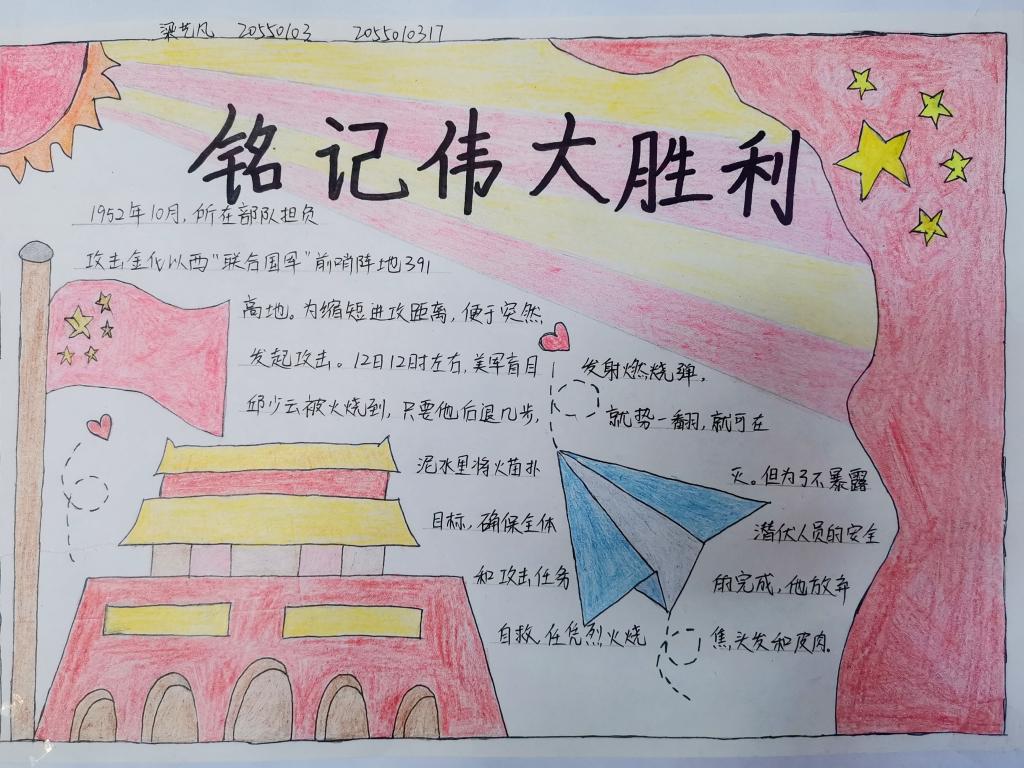 梁艺凡 20550103 2055010317
铭记伟大胜利
1952年10月，所在部队担负
攻击金化以西“联合国军”前哨阵地391
高地。为缩短进攻距离，便于突然
发起攻击。12日12时左右，美军盲目 发射燃烧弹，
邱少云被火烧到，只要他后退几步， 就势一翻，就可在
泥水里将火苗扑 灭。但为了不暴露
目标，确保全体 潜伏人员的安全
和攻击任务 的完成，他放弃
自救，任凭烈火烧 焦头发和皮肉。